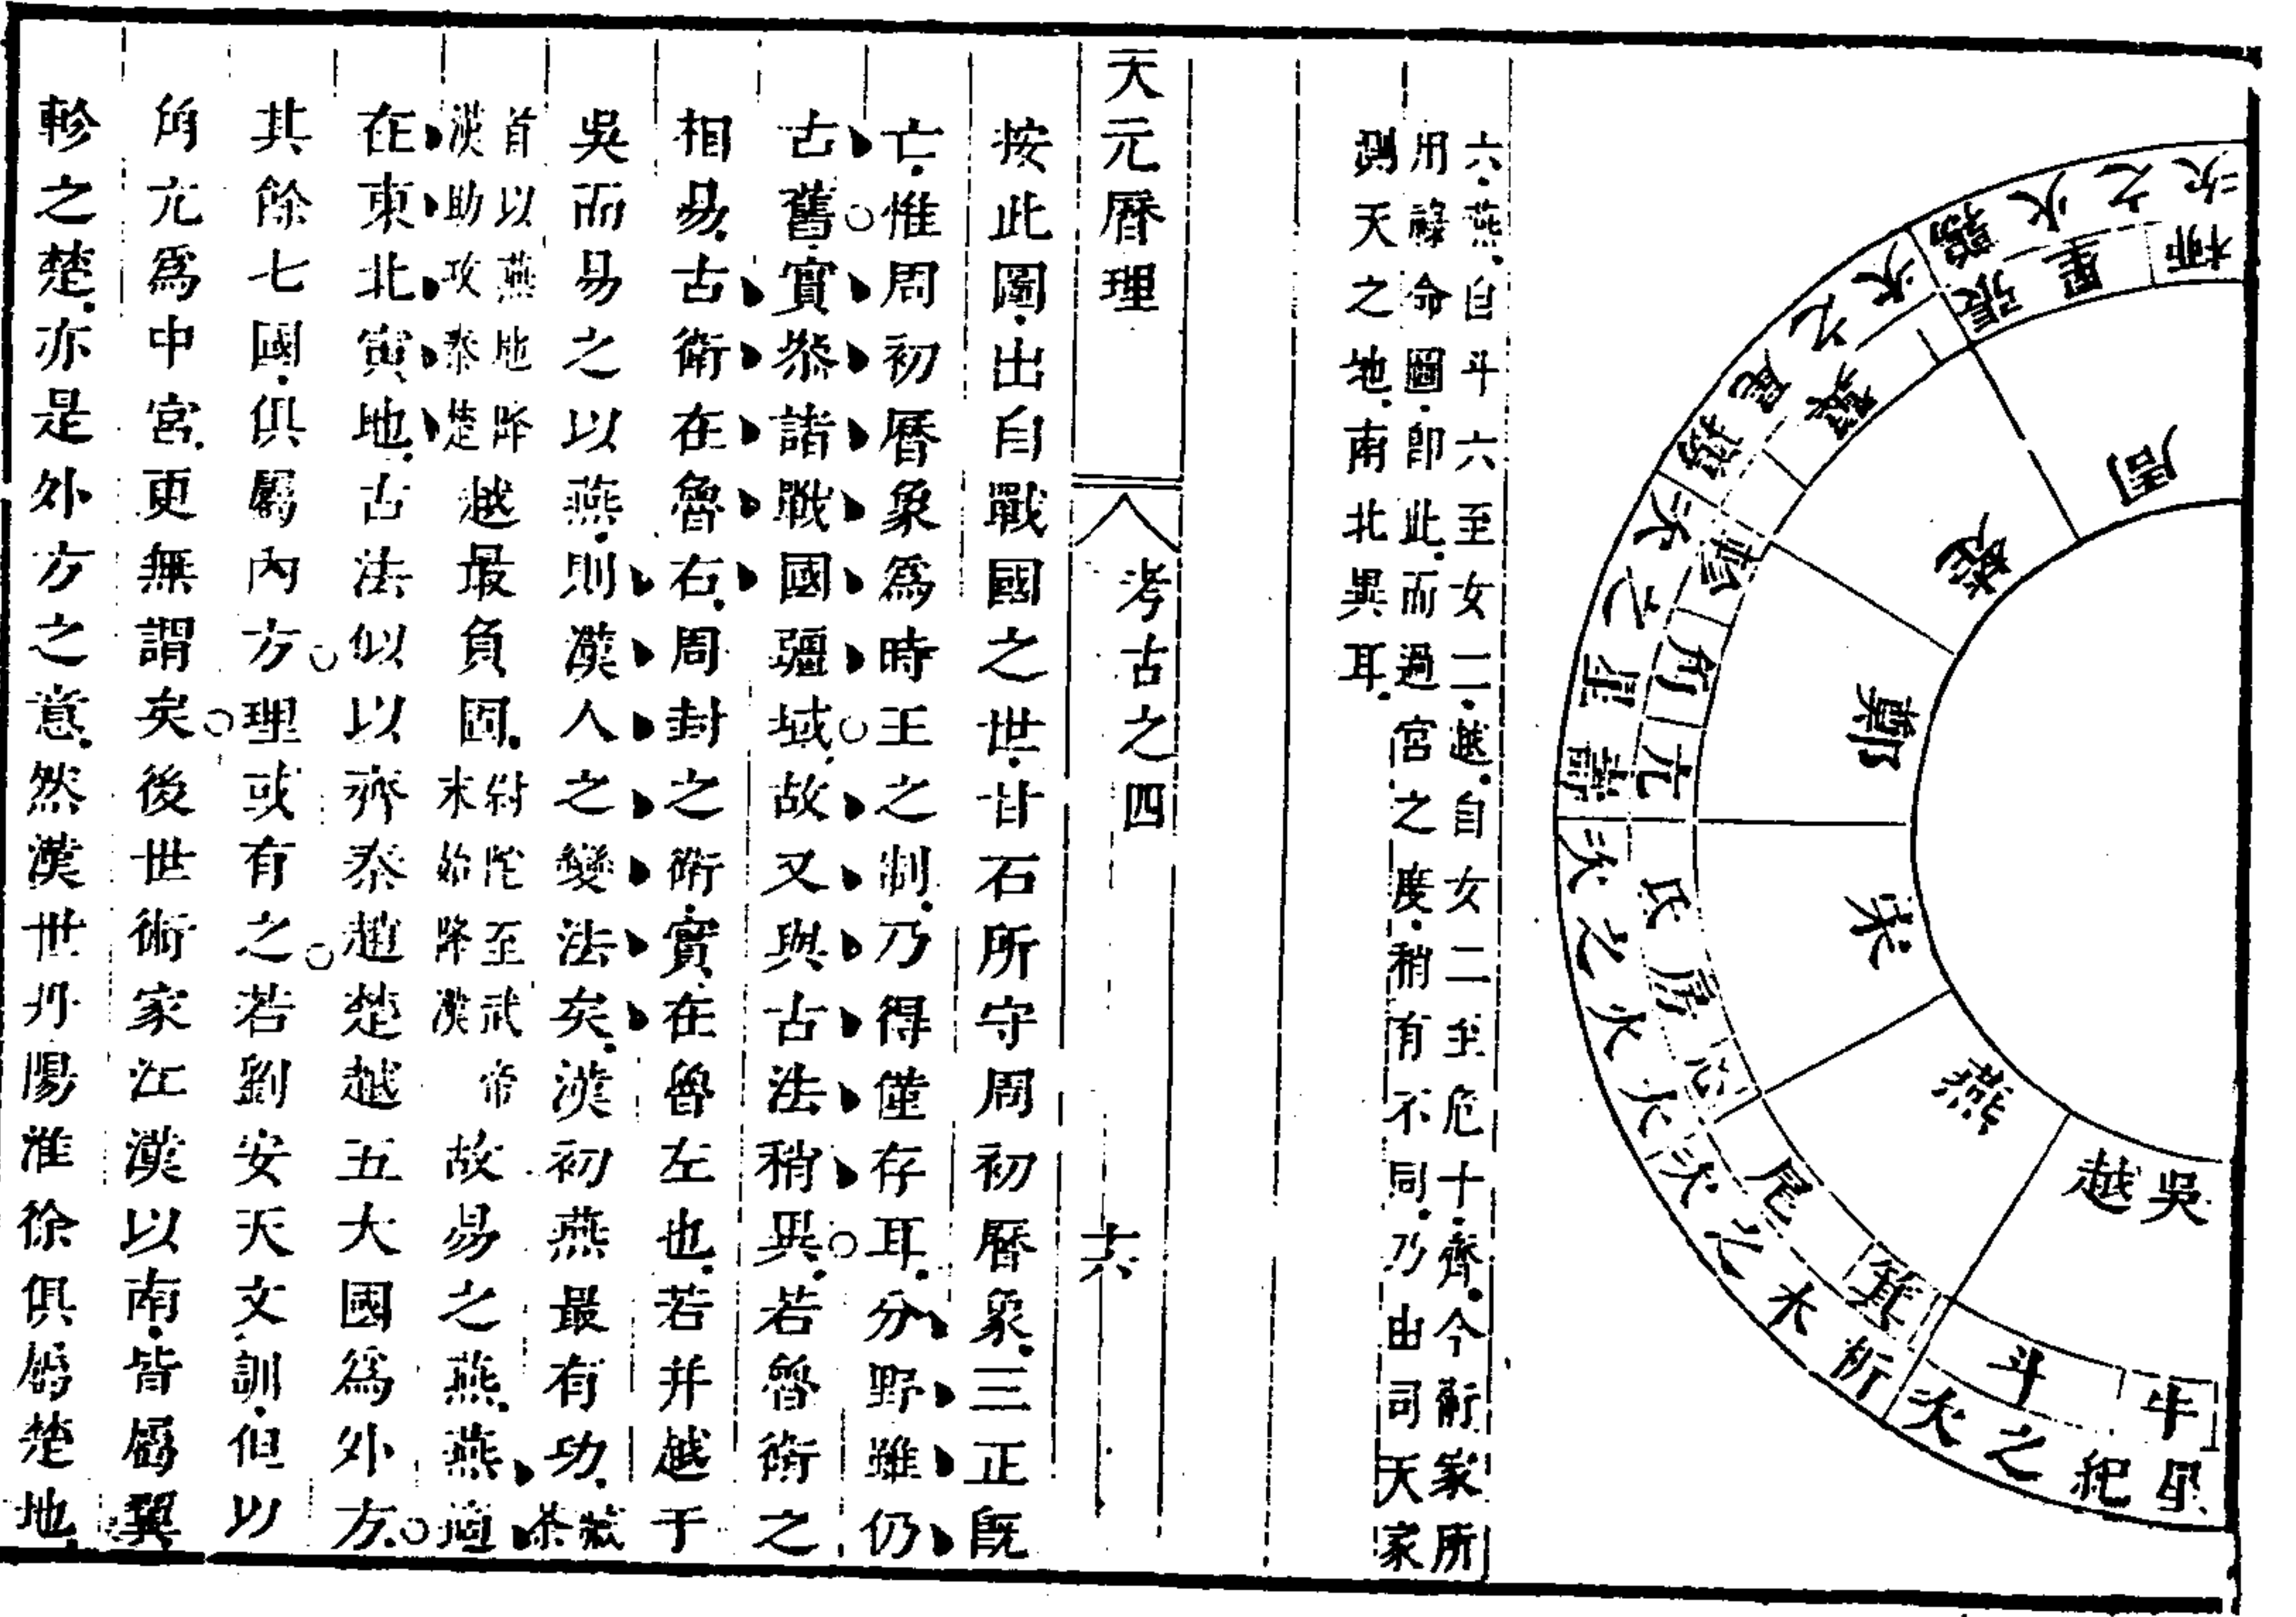 鶉火之次
柳星張
周
鶉尾之次
翼
楚
壽星之次
軫角亢
鄭
大火之次
氐房心
宋
析木之次
尾箕
燕
星紀之次
斗牛
吳越
六燕自斗六至女二越自女二至危十齊今術家所
用祿命圖即此而過宮之度稍有不同乃由司天家
測天之地南北異耳
天元曆理 考古之四 十六
按此圖出自戰國之世甘石所守周初曆象三正既
亡惟周初曆象爲時王之制乃得僅存耳分野雖仍
古舊實叅諸戰國疆域故又與古法稍異若魯衛之
相易古衛在魯右周封之衛實在魯左也若并越于
吳而易之以燕則漢人之變法矣漢初燕最有功臧荼
首以燕地降漢助攻秦楚越最負固尉陀至武帝末始降漢故易之燕燕適
在東北寅地古法似以齊秦趙楚越五大國爲外方
其餘七國俱屬內方理或有之若劉安天文訓但以
角亢爲中宮更無謂矣後世術家江漢以南皆屬翼
軫之楚亦是外方之意然漢世丹陽淮徐俱屬楚地